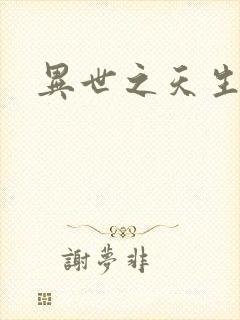 異世之天生
謝夢非